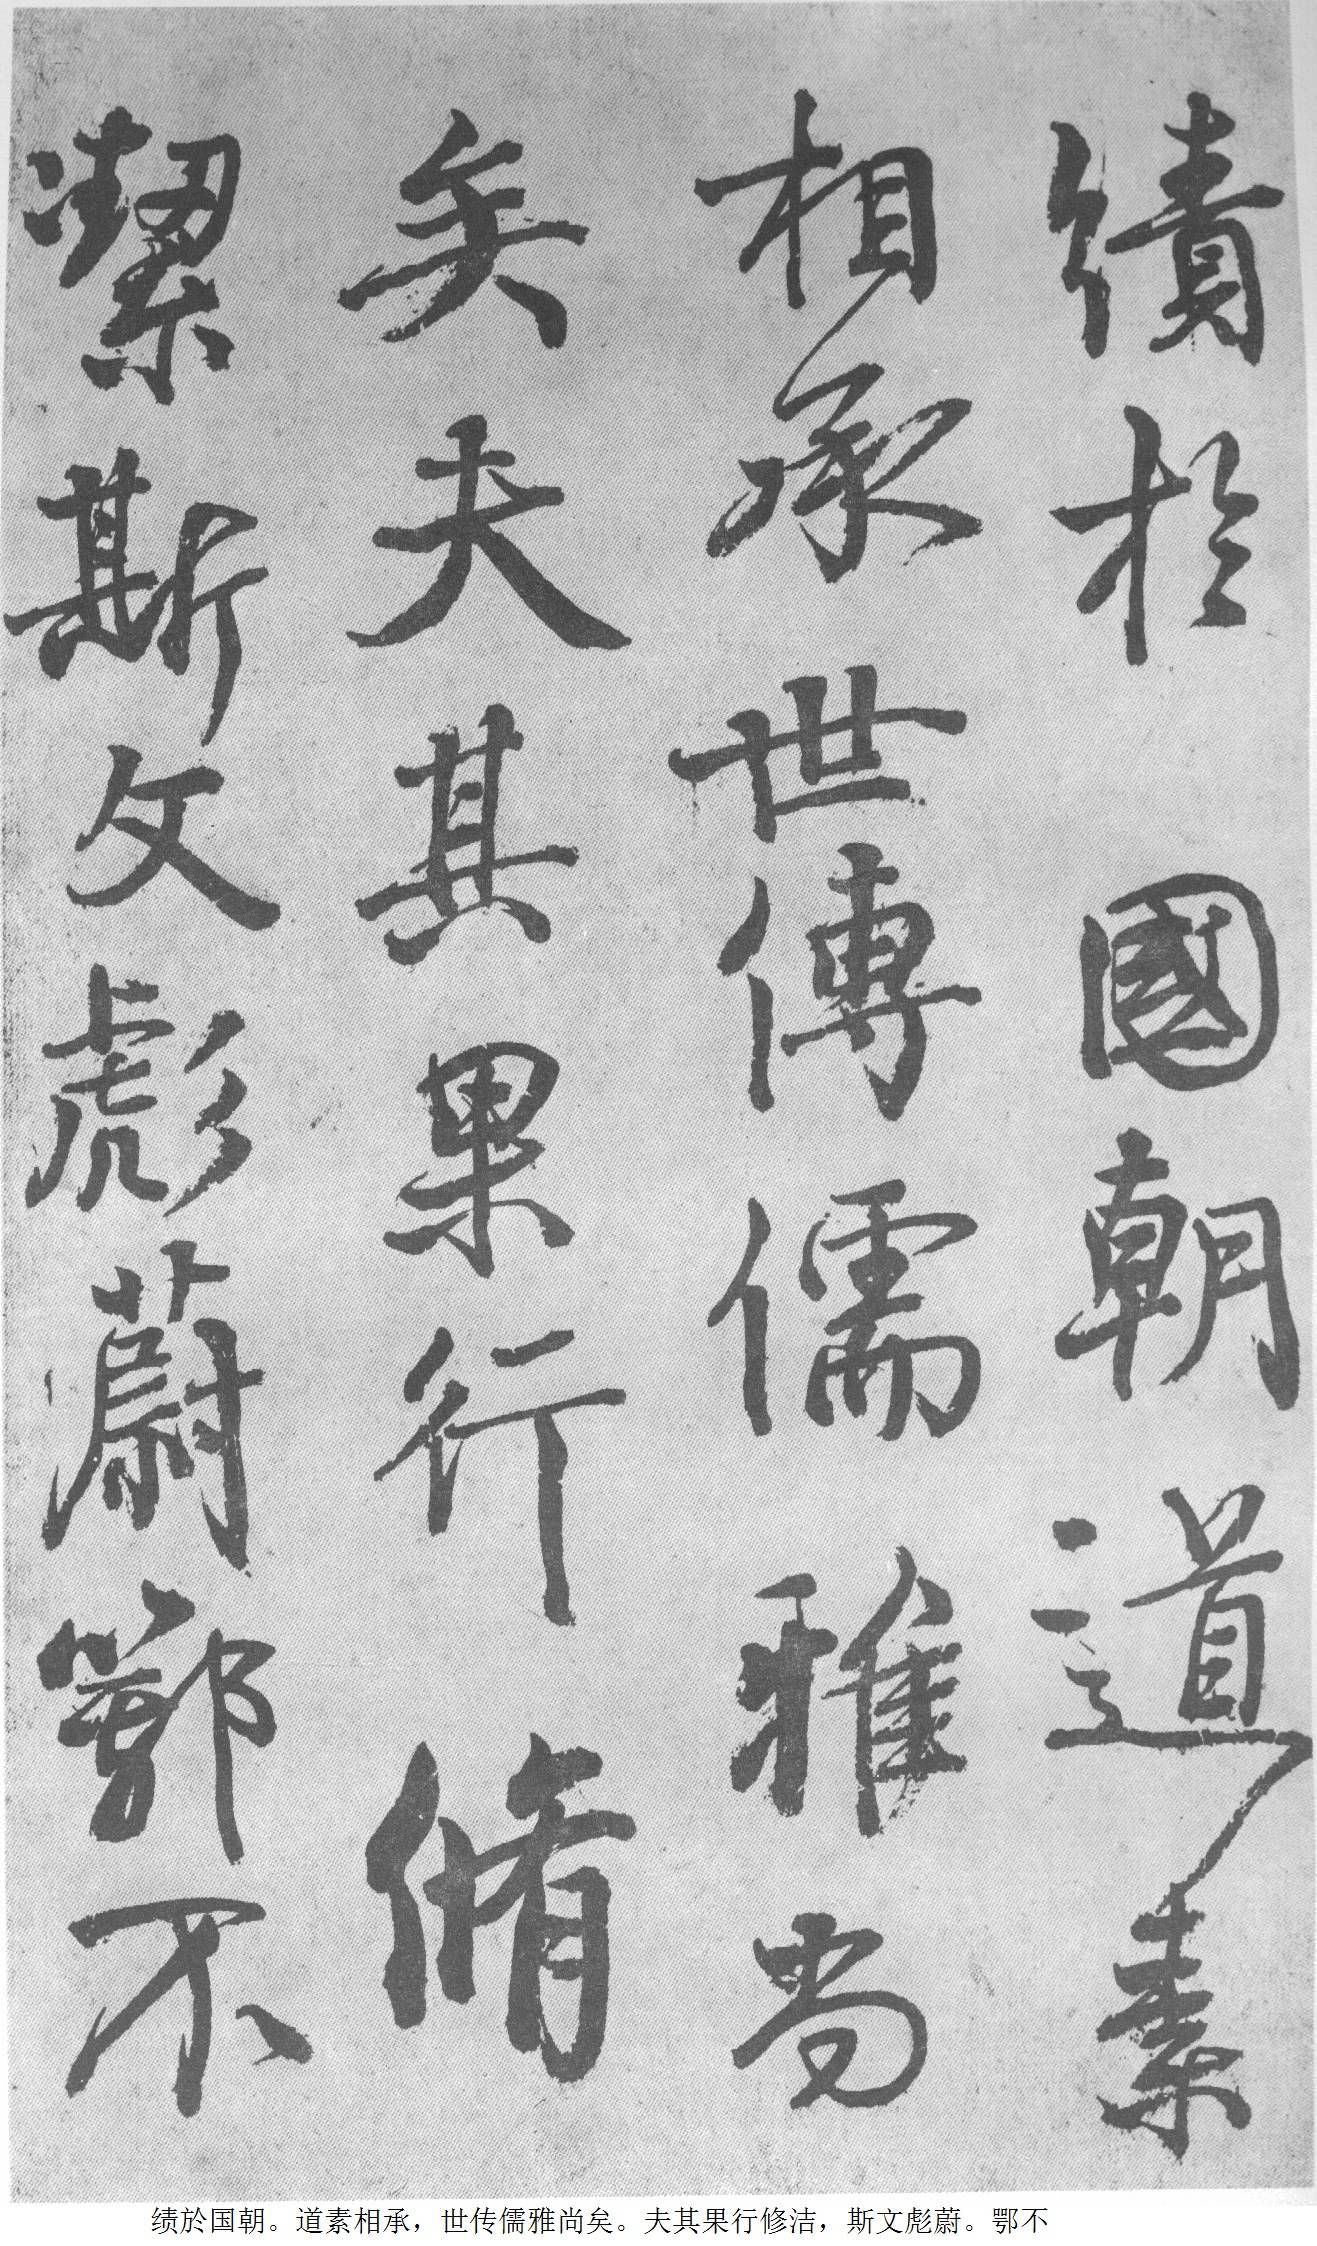 績於國朝道素
相承世傳儒雅尚
矣夫其果行脩
潔斯文彪蔚鄂不
绩於国朝。道素相承，世传儒雅尚矣。夫其果行修洁，斯文彪蔚。鄂不